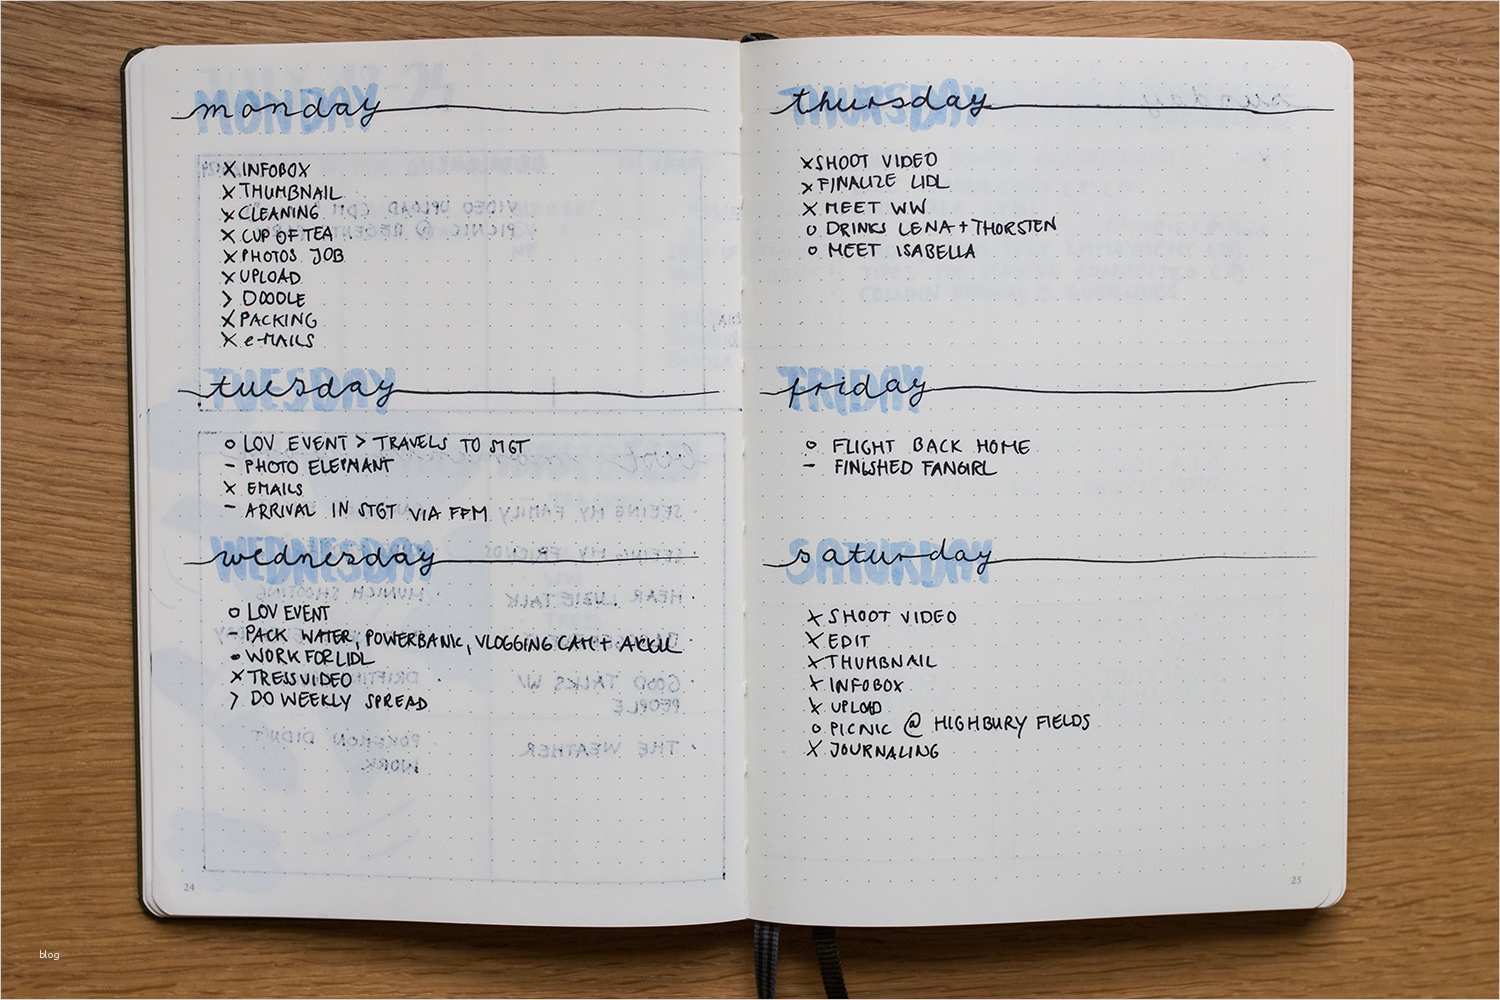 monday
x INFOBOX
x THUMBNAIL
x CLEANING
x CUP OF TEA
x PHOTOS JOB
x UPLOAD
> DOODLE
x PACKING
x e-MAILS
tuesday
o LOV EVENT > TRAVELS TO STGT
- PHOTO ELEPHANT
x EMAILS
- ARRIVAL IN STGT VIA FFM
wednesday
o LOV EVENT
- PACK WATER, POWERBANK, VLOGGING CAM + AKKU
• WORK FOR LIDL
x TRESS VIDEO
> DO WEEKLY SPREAD
24
thursday
x SHOOT VIDEO
x FINALIZE LIDL
x MEET WW
o DRINKS LENA + THORSTEN
o MEET ISABELLA
friday
o FLIGHT BACK HOME
- FINISHED FANGIRL
saturday
x SHOOT VIDEO
x EDIT
x THUMBNAIL
x INFOBOX
x UPLOAD
o PICNIC @ HIGHBURY FIELDS
x JOURNALING
25
blog